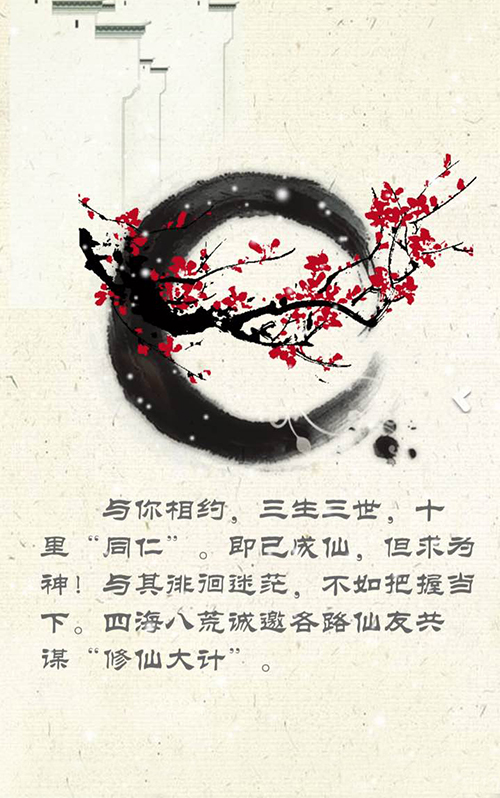 与你相约，三生三世，十
里“同仁”。即已成仙，但求为
神！与其徘徊迷茫，不如把握当
下。四海八荒诚邀各路仙友共
谋“修仙大计”。